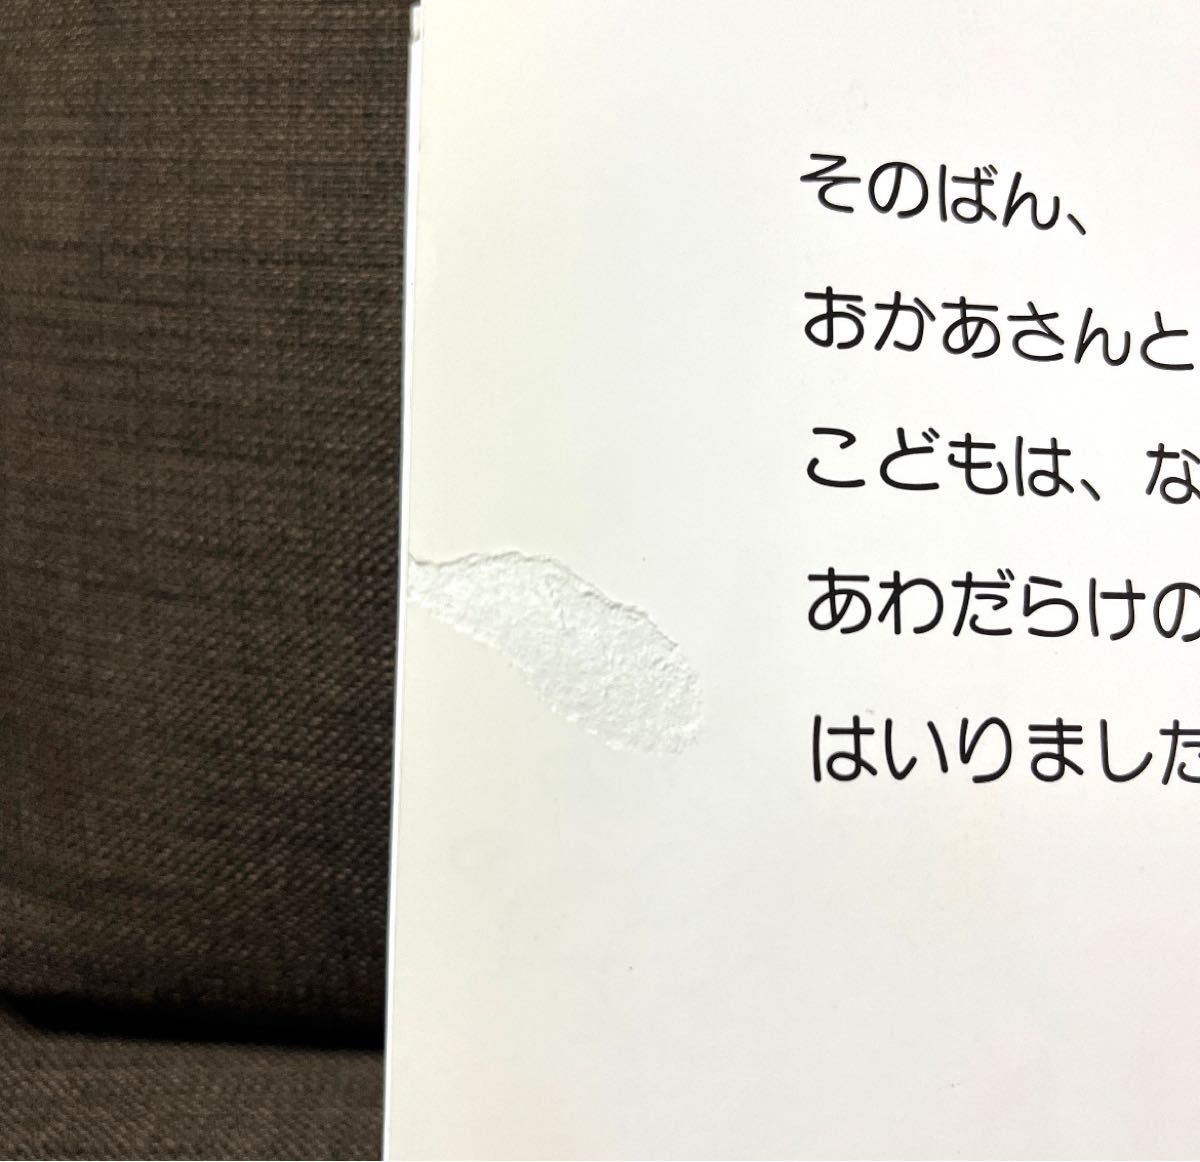 そのばん、
おかあさんと
こどもは、な
あわだらけの
はいりました